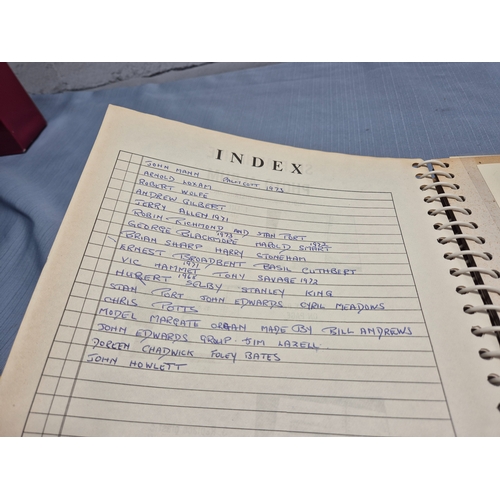 INDEX
JOHN MANN 1973
ARNOLD LOXAM
ROBERT WOLFE
ANDREW GILBERT
JERRY ALLEN 1971
ROBIN RICHMOND AND STAN PORT
GEORGE BLACKMORE 1973 HAROLD SMART 1972
BRIAN SHARP HARRY STONEHAM
ERNEST BROADBENT BASIL CUTHBERT
VIC HAMMET 1971 TONY SAVAGE 1972
HUBERT SELBY STANLEY KING
STAN PORT 1968 JOHN EDWARDS CYRIL MEADOWS
CHRIS POTTS
MODEL MARGATE ORGAN MADE BY BILL ANDREWS
JOHN EDWARDS GROUP JIM LAZELL
DOREEN CHADWICK FOLEY BATES
JOHN HOWLETT